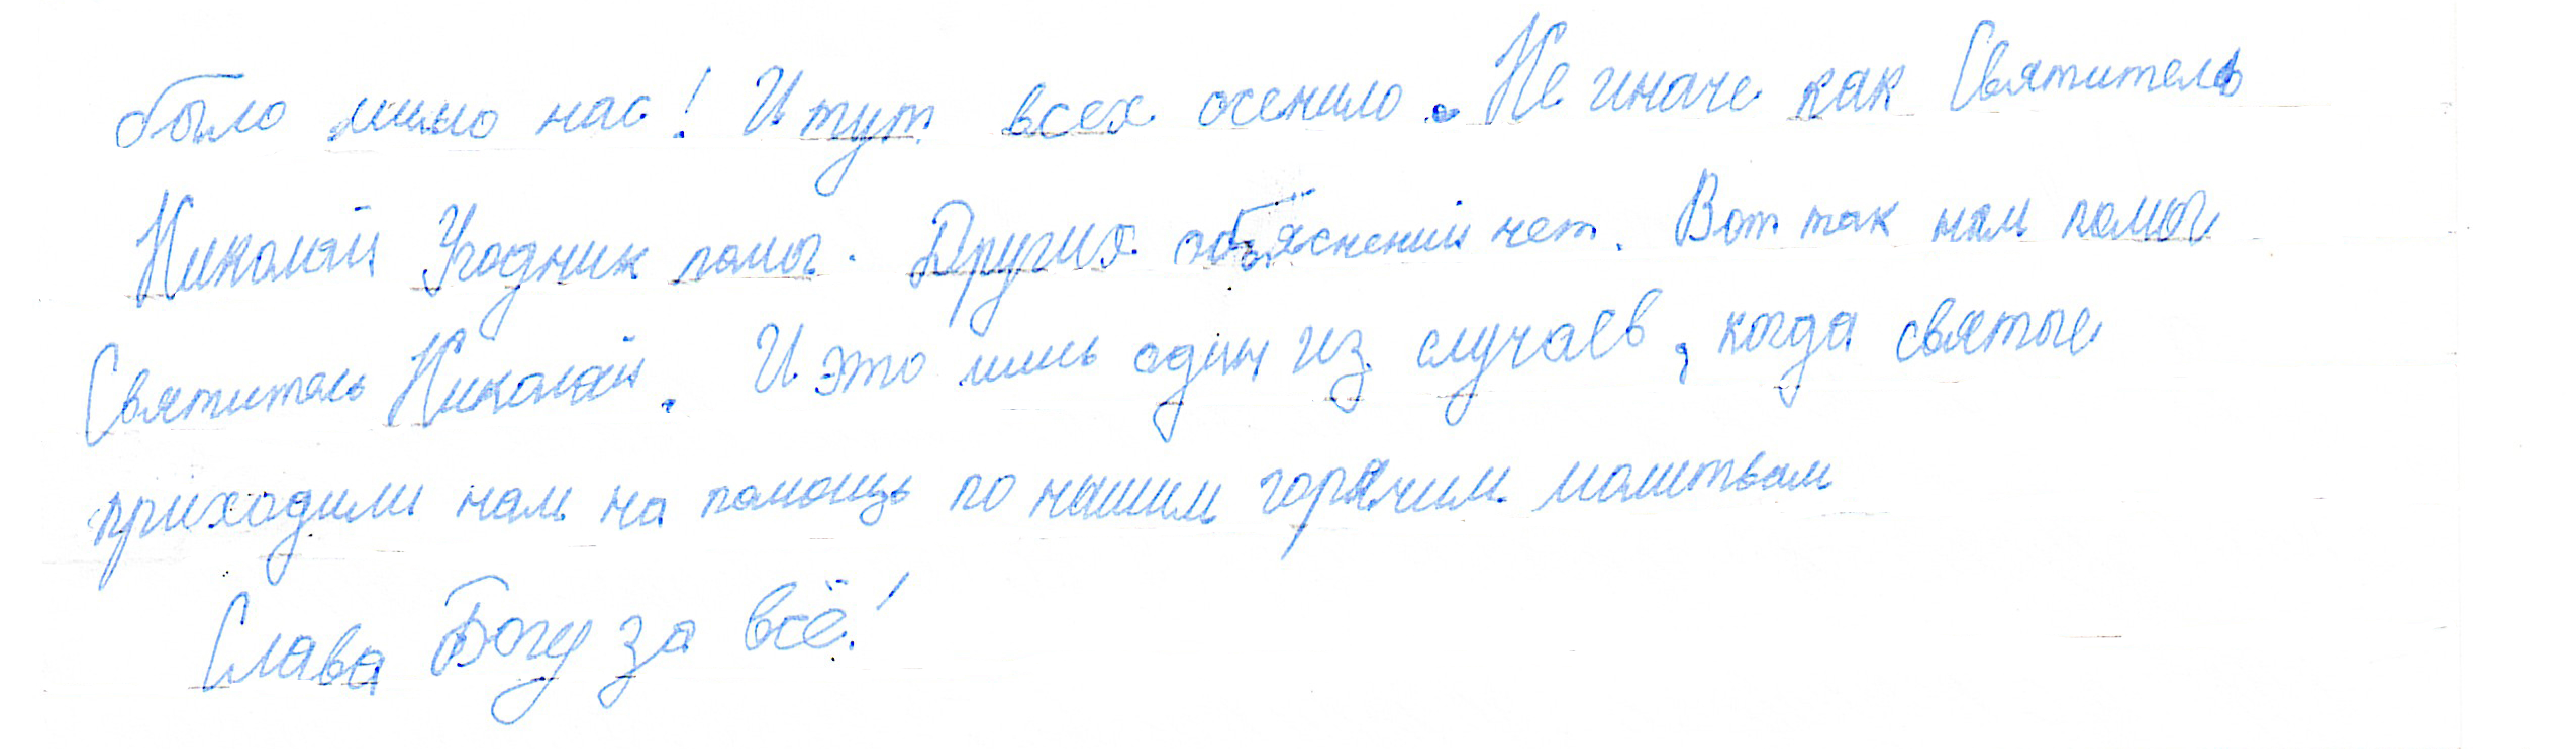 было мимо нас! И тут всех осенило. Не иначе как Святитель
Николай Угодник помог. Других объяснений нет. Вот так нам помог
Святитель Николай. И это лишь один из случаев, когда святые
приходили нам на помощь по нашим горячим молитвам
Слава Богу за всё!